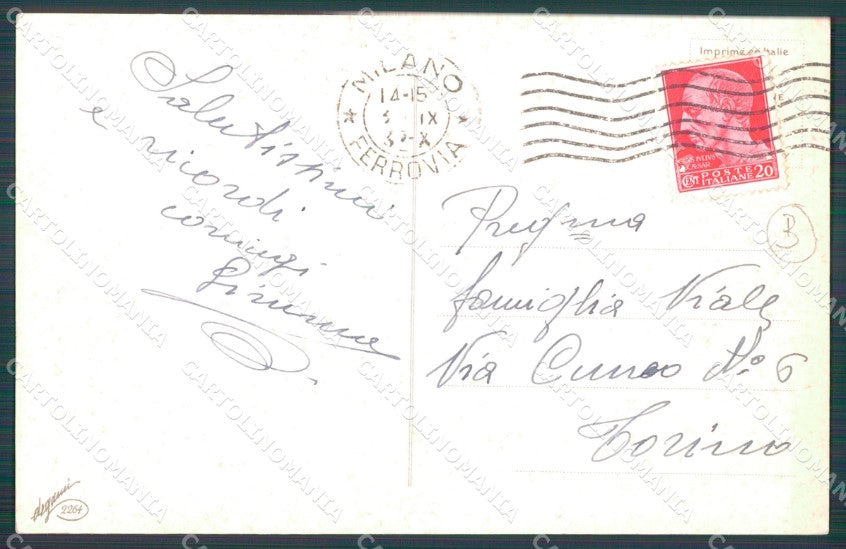 Salutissimi
e ricordi
coniugi
MILANO
14-15
3 IX
3 -X
FERROVIA
Imprimé en Italie
IVLIVS
CAESAR
CENT POSTE ITALIANE 20
B
famiglia Viale
Via Cuneo N.o 6
Torino
degami
2264
CARTOLINOMANIA